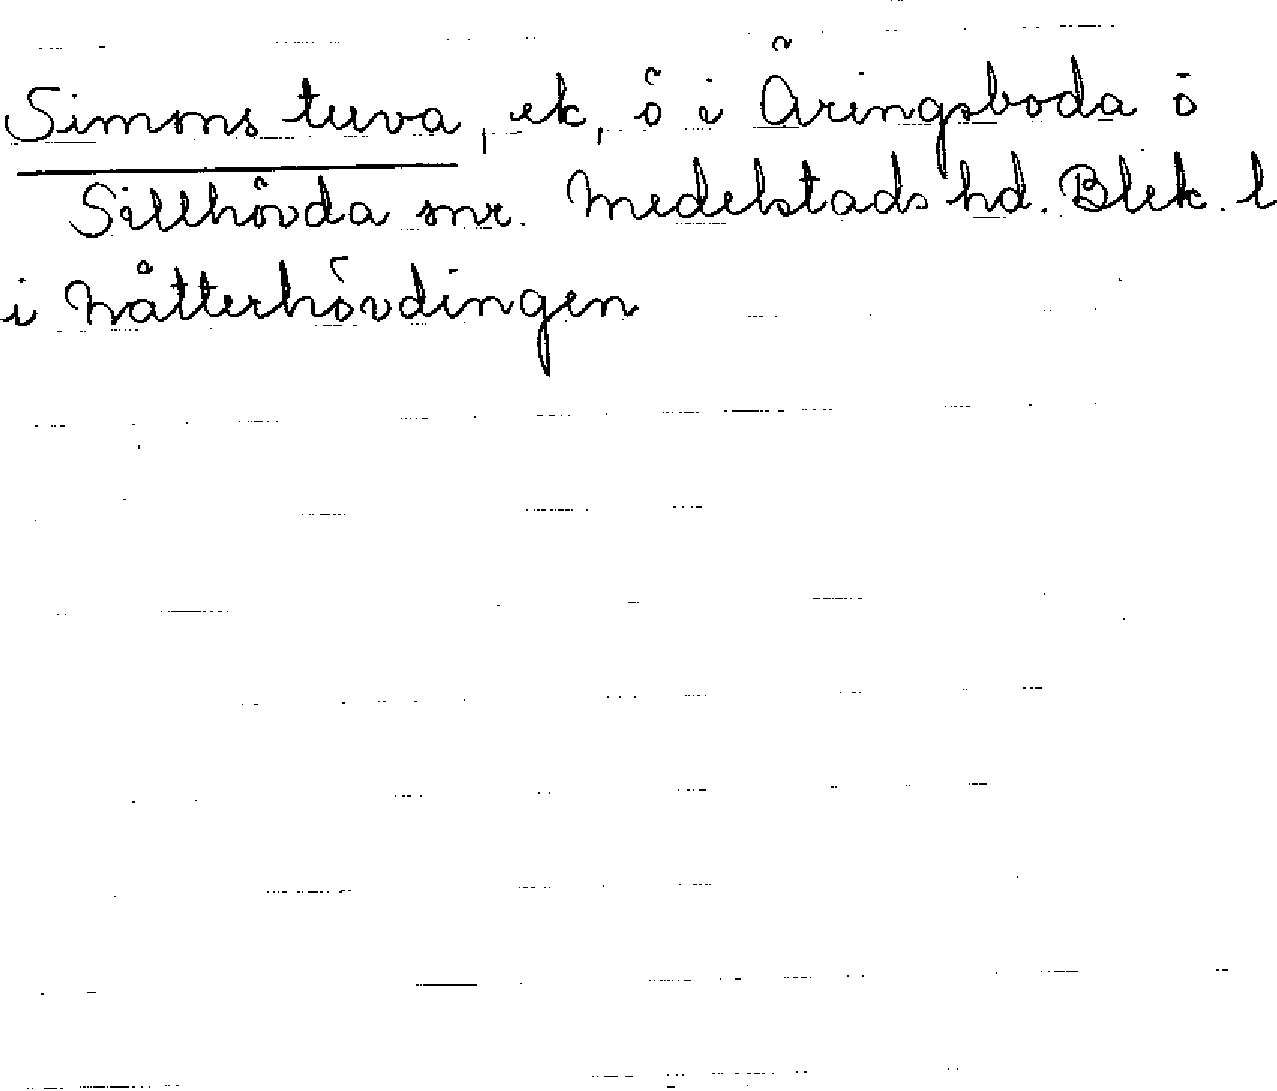 Simons tuva, ek, ö i Åringsboda ö
Sillhövda snr. Medelstads hd. Blek. l
i Nåtterhövdingen